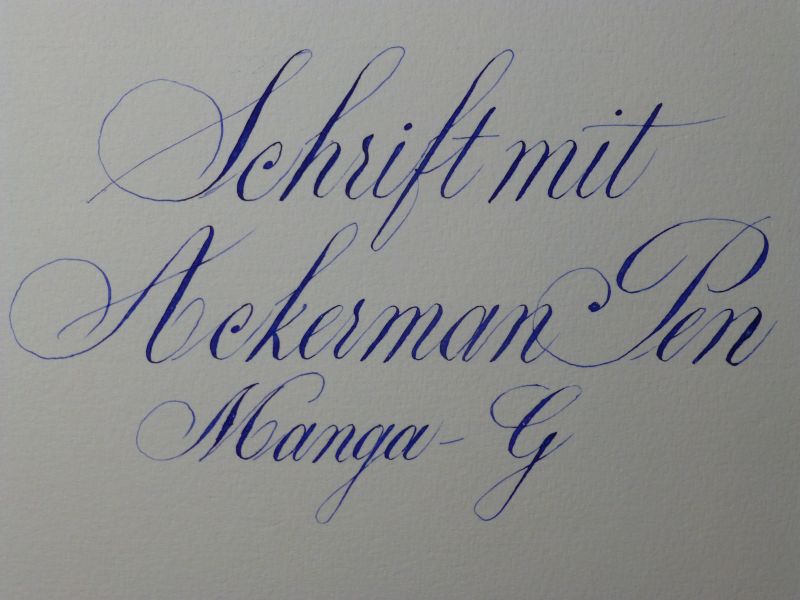 Schrift mit
Ackerman Pen
Manga-G